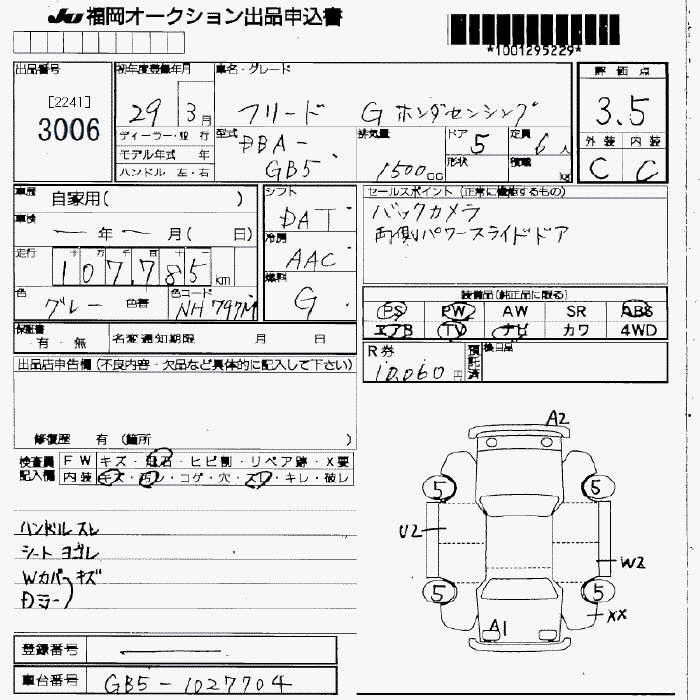 JU 福岡オークション出品申込書
*1001295229*
出品番号
[2241]
3006
初年度登録年月
29 3月
ディーラー・並 行
モデル年式 年
ハンドル 左・右
車名・グレード
フリード G ホンダセンシング
型式
DBA-
GB5
排気量
1500cc
ドア
5
定員
6人
形状
積載
kg
評価点
3.5
外装 内装
C C
車歴
自家用( )
車検
ー年ー月( 日)
走行
107,785km
色
グレー 色替
色コード
NH797M
シフト
DAT
冷房
AAC
燃料
G
セールスポイント (正常に機能するもの)
バックカメラ
両側パワースライドドア
装備品(純正品に限る)
PS PW AW SR ABS
エアB TV ナビ カワ 4WD
保証書
有・無
名変通知期限 月 日
R券
10,060円
預託済
後日品
出品店申告欄(不良内容・欠品など具体的に記入して下さい)
修復歴 有 (箇所 )
検査員記入欄
FW キズ・飛石・ヒビ割・リペア跡・X要
内装 キズ・汚レ・コゲ・穴・スレ・キレ・破レ
ハンドルスレ
シートヨゴレ
Wカバーキズ
Dミラー
A2
5 5
U2
W2
5 5
XX
A1
登録番号
車台番号 GB5-1027704